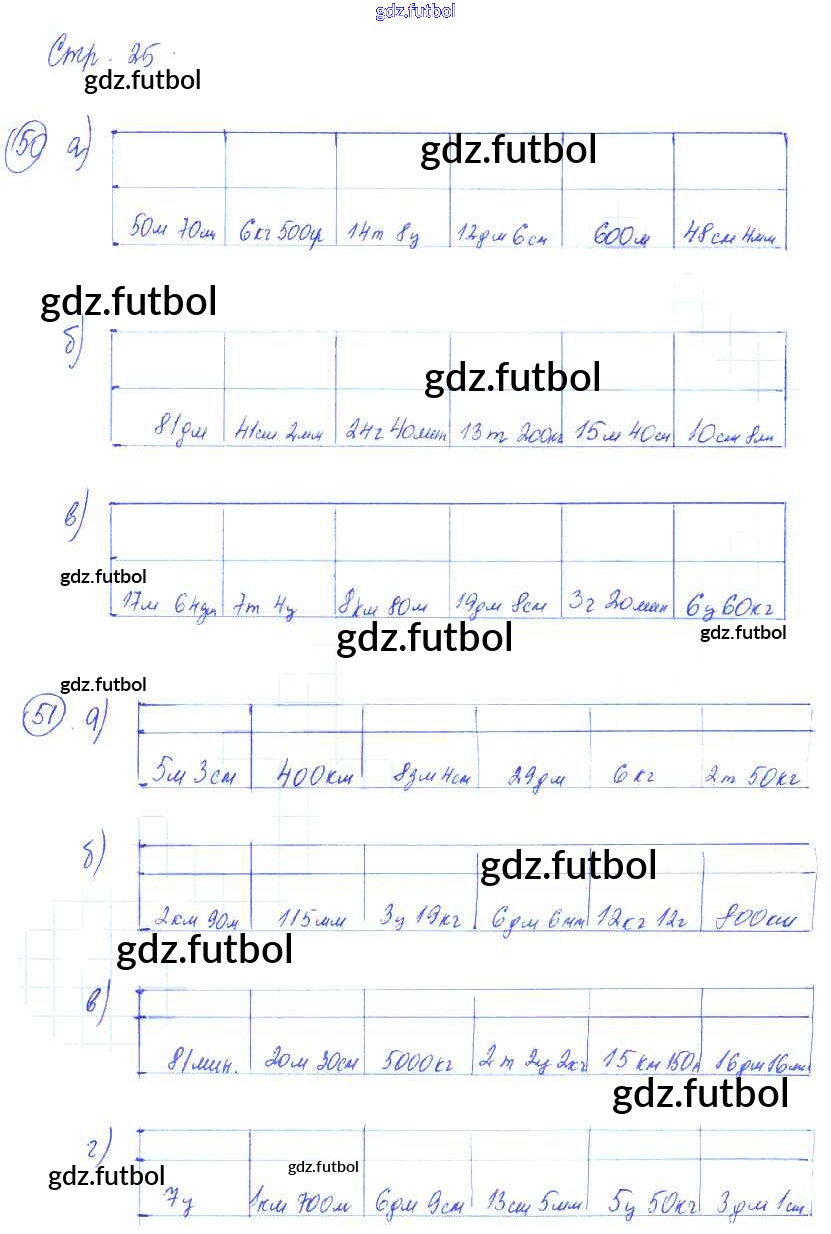 gdz.futbol
Стр. 25.
gdz.futbol
50 а)
gdz.futbol
50м 70см 6кг 500гр 14т 8ц 12дм 6см 600м 48см 4мм
gdz.futbol
б)
gdz.futbol
81дм 41см 2мм 24г 40мин 13т 200кг 15м 40см 10см 8мм
в)
gdz.futbol
17м 64дм 7т 4ц 8км 80м 19дм 8см 3г 20мин 6ц 60кг
gdz.futbol gdz.futbol
gdz.futbol
51. а)
5м 3см 400км 8дм 4см 29дм 6кг 2т 50кг
б)
gdz.futbol
2км 90м 115мм 3ц 19кг 6дм 6мм 12кг 12г 800см
gdz.futbol
в)
81мин. 20м 30см 5000кг 2т 2ц 2кг 15км 150м 16дм 16мм
gdz.futbol
г)
gdz.futbol gdz.futbol
7ц 1км 700м 6дм 9см 13см 5мм 5ц 50кг 3дм 1см